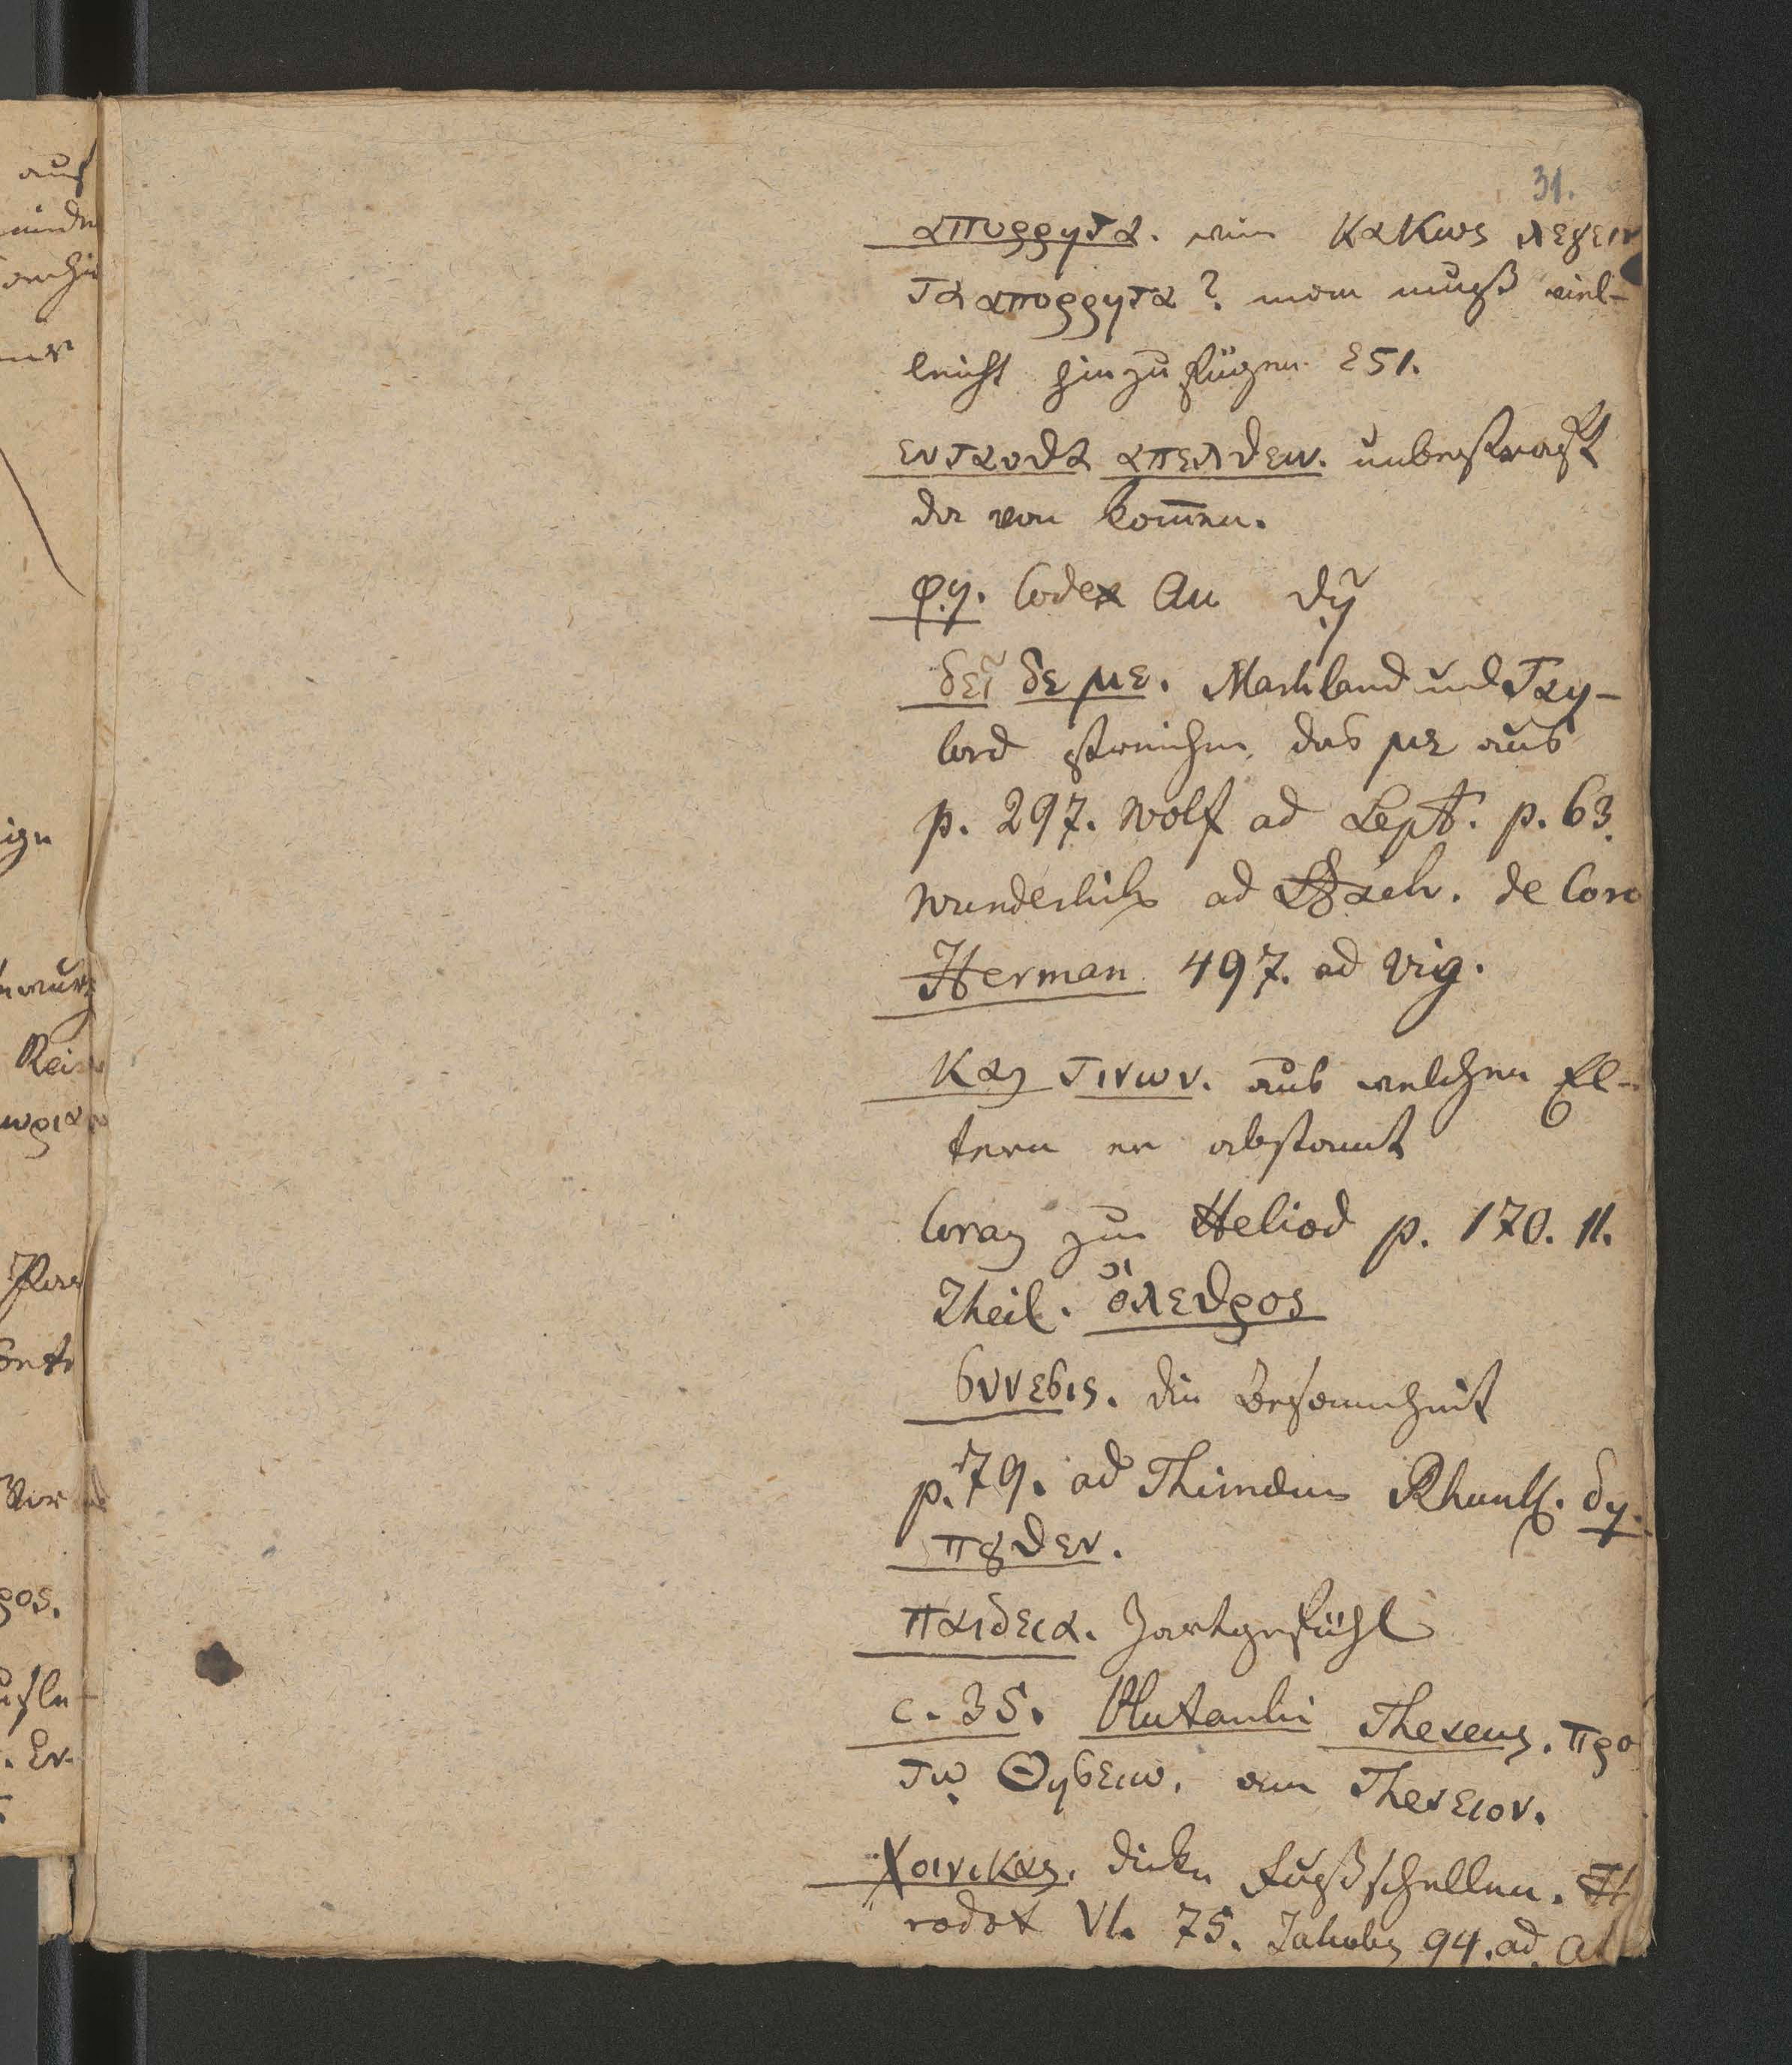 31.
αποῤῥητα. wie κακως λεγειν
τα αποῤῥητα? man muß viel-
leicht hinzufügen εςι.
ενταυθα απελθειν. unbestraft
da von kom̅en.
φῃ. Codex Au θῃ̃
δει̃ δε με. Markland und Tay-
lord streichen das με aus
p. 297. Wolf ad Lept. p. 63.
Wunderlich ad Aesch. de Coro
Herman 497. ad Vig.
Και τινων. aus welchen El-
tern er abstamt
Coray zur Heliod p. 170. II.
Theil. ὄλεθρος
συνεσις. die Besonnenheit
p. 79. ad Thimäus Rhunk. δη-
πȣθεν.
παιδεια. Zartgefühl
c. 35. Plutarchi Theseus. προ
τῳ Θησειω. am Theseion.
Χοινικας. dicke Fußschellen. He
rodot VI. 75. Jakobs 94. ad
auf
Rei
ρος.
. Er-